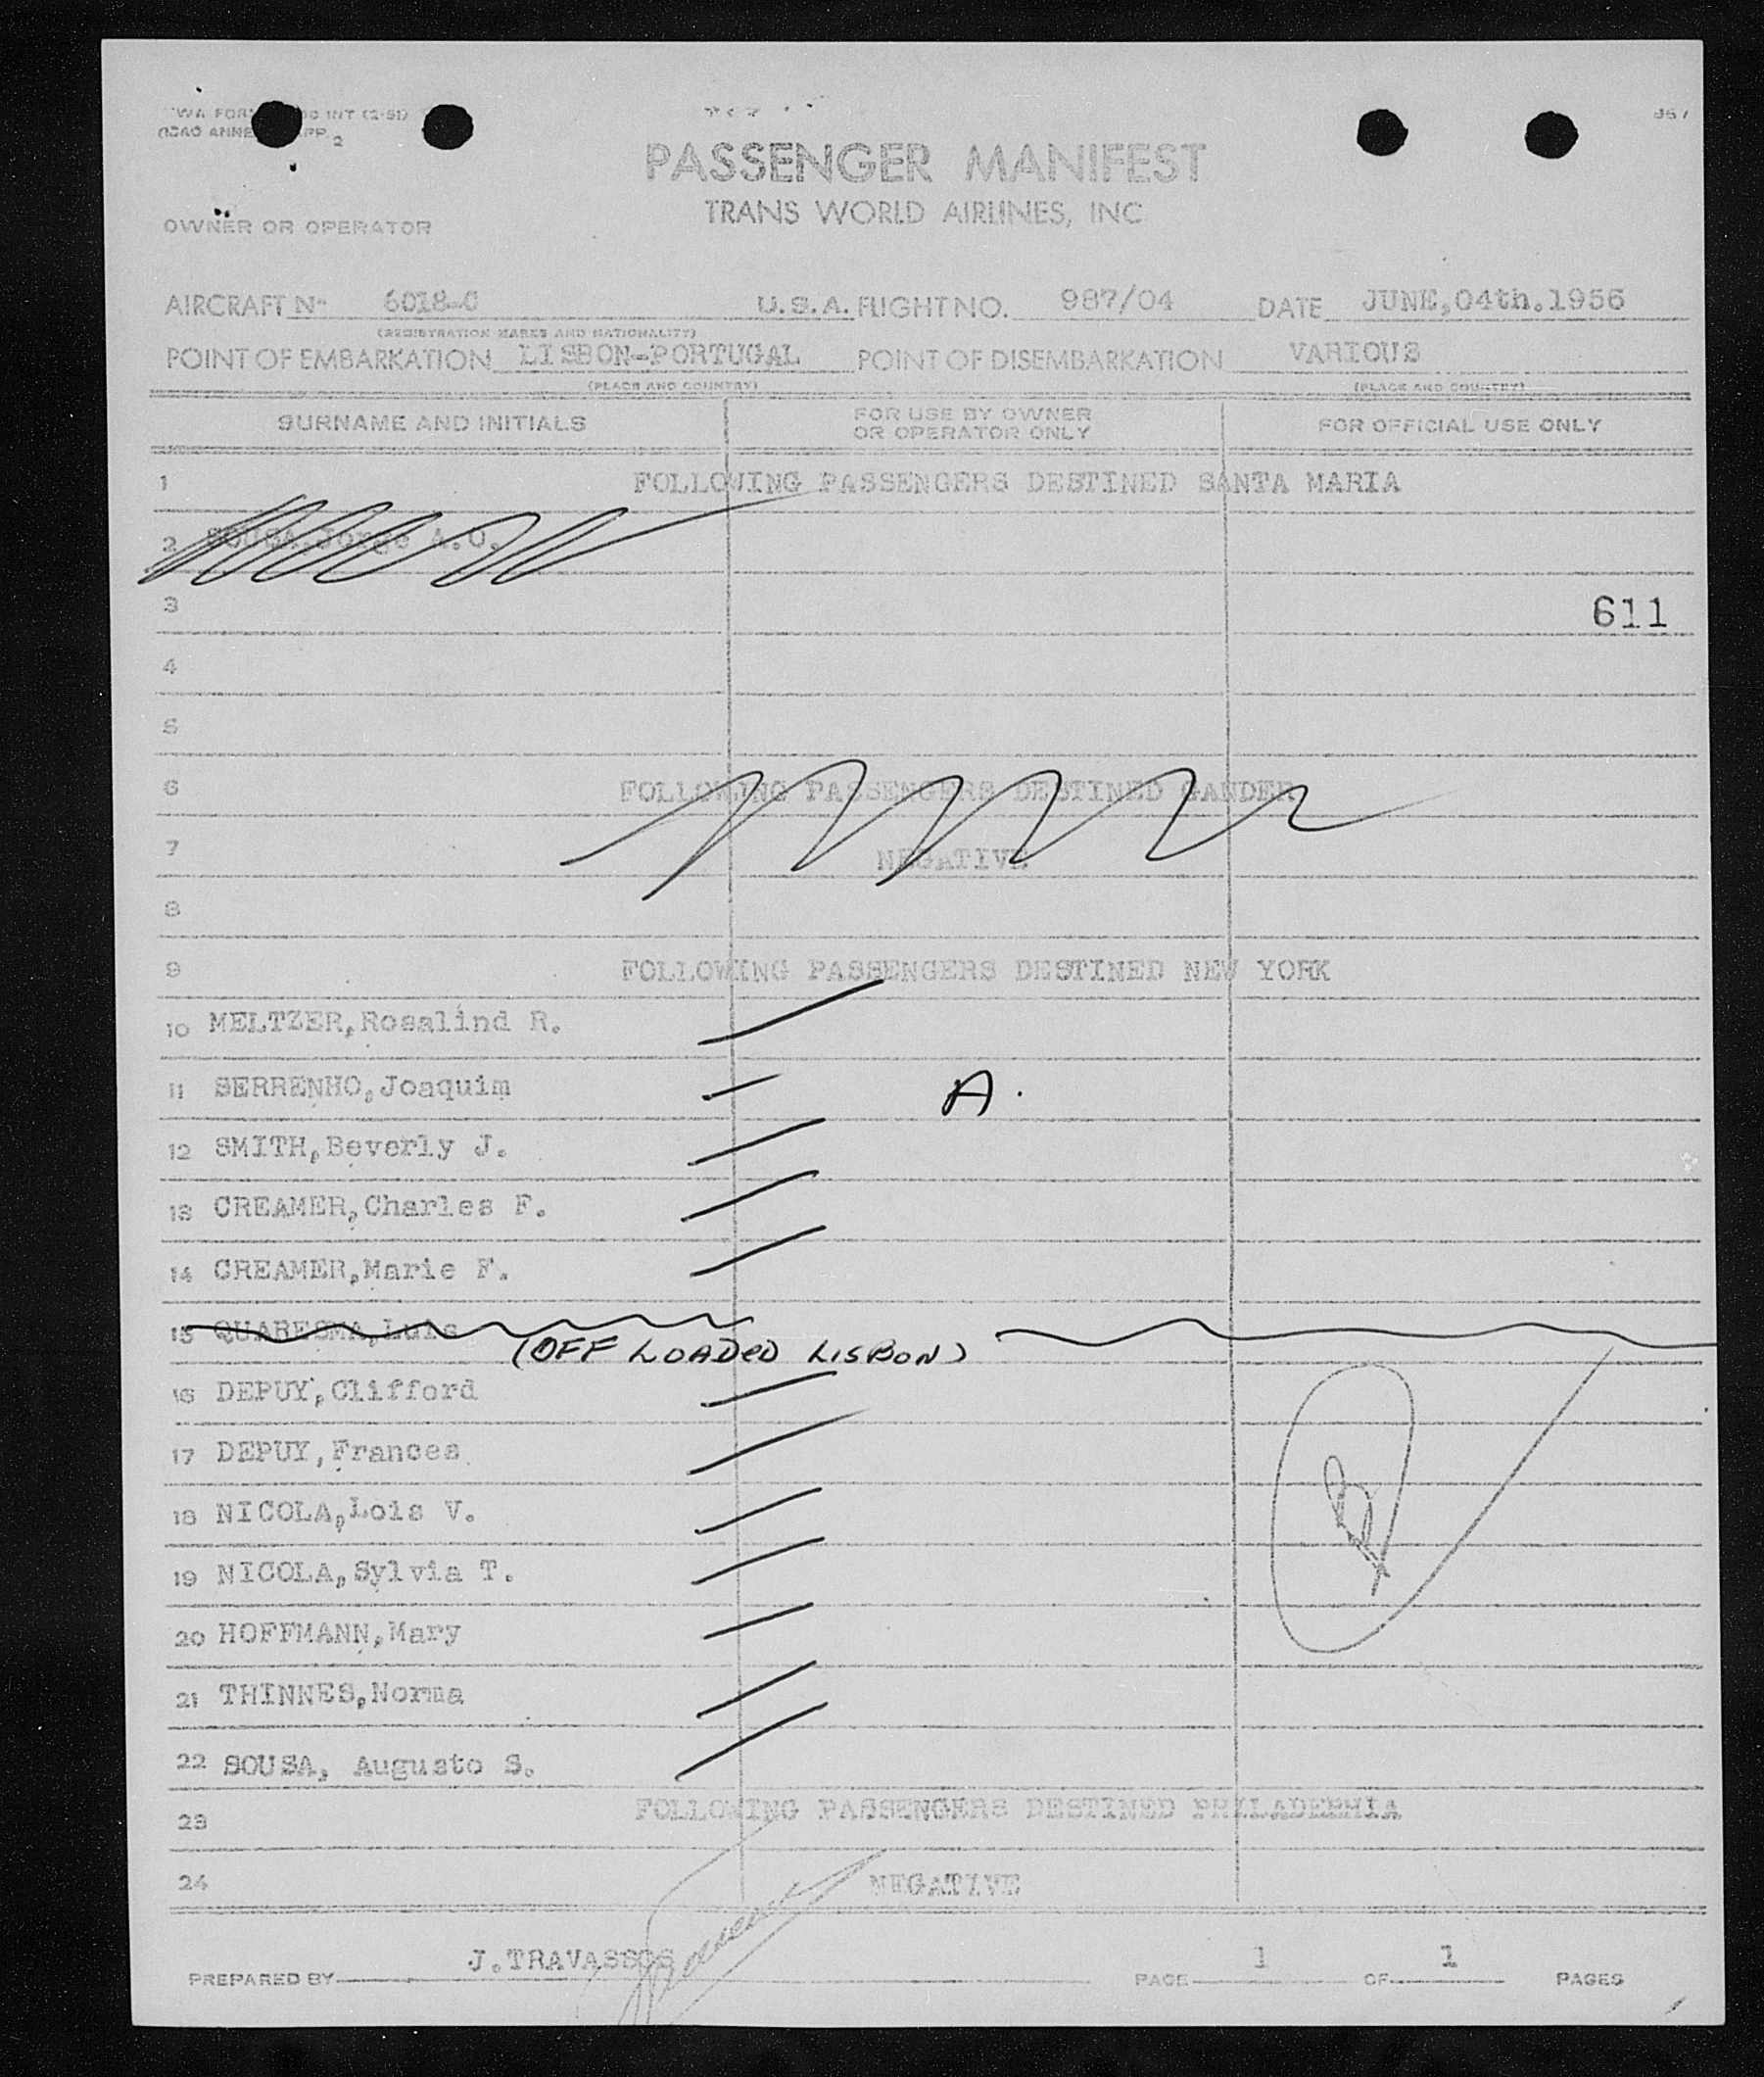 PASSENGER MANIFEST
TRANS WORLD AIRLINES, INC
OWNER OR OPERATOR
AIRCRAFT No 6018-C U.S.A. FLIGHT NO. 987/04 DATE JUNE,04th.1956
(REGISTRATION MARKS AND NATIONALITY)
POINT OF EMBARKATION LISBON-PORTUGAL POINT OF DISEMBARKATION VARIOUS
(PLACE AND COUNTRY) (PLACE AND COUNTRY)
SURNAME AND INITIALS FOR USE BY OWNER OR OPERATOR ONLY FOR OFFICIAL USE ONLY
1 FOLLOWING PASSENGERS DESTINED SANTA MARIA
2 SOUSA,Jorge A.O.
3 611
4
5
6 FOLLOWING PASSENGERS DESTINED GANDER
7 NEGATIVE
8
9 FOLLOWING PASSENGERS DESTINED NEW YORK
10 MELTZER,Rosalind R.
11 SERRENHO,Joaquim A.
12 SMITH,Beverly J.
13 CREAMER,Charles F.
14 CREAMER,Marie F.
15 QUARESMA,Luis
(OFF LOADED LISBON)
16 DEPUY,Clifford
17 DEPUY,Frances
18 NICOLA,Lois V.
19 NICOLA,Sylvia T.
20 HOFFMANN,Mary
21 THINNES,Norma
22 SOUSA, Augusto S.
23 FOLLOWING PASSENGERS DESTINED PHILADEPHIA
24 NEGATIVE
PREPARED BY J.TRAVASSOS PAGE 1 OF 1 PAGES